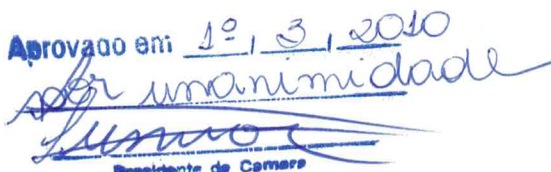 Aprovado em 1º, 3, 2010
por unanimidade
Presidente da Camara